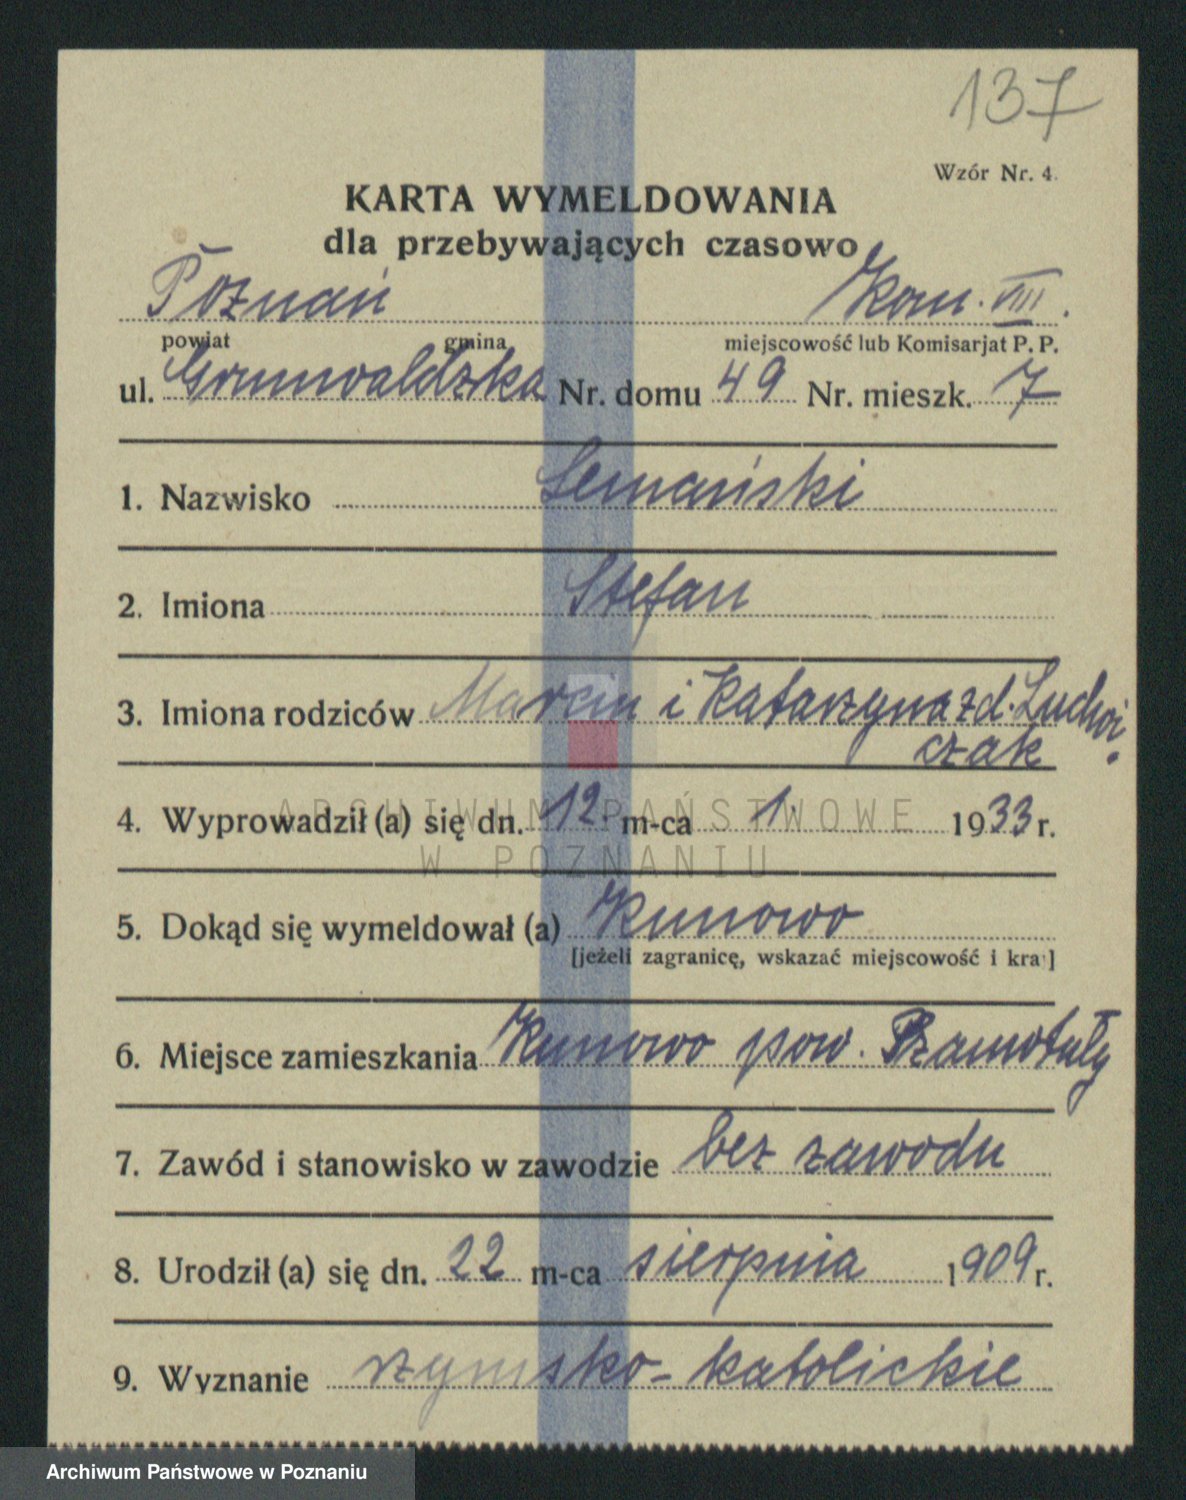 137
Wzór Nr. 4.
KARTA WYMELDOWANIA
dla przebywających czasowo
Poznań Kom. VIII.
powiat gmina miejscowość lub Komisarjat P. P.
ul. Grunwaldzka Nr. domu 49 Nr. mieszk. 7
1. Nazwisko Lemański
2. Imiona Stefan
3. Imiona rodziców Marcin i Katarzyna zd. Ludwi
czak.
4. Wyprowadził (a) się dn. 12 m-ca 1. 1933 r.
ARCHIWUM PAŃSTWOWE
W POZNANIU
5. Dokąd się wymeldował (a) Kunowo
[jeżeli zagranicę, wskazać miejscowość i kraj]
6. Miejsce zamieszkania Kunowo pow. Szamotuły
7. Zawód i stanowisko w zawodzie bez zawodu
8. Urodził (a) się dn. 22 m-ca sierpnia 1909 r.
9. Wyznanie rzymsko-katolickie
Archiwum Państwowe w Poznaniu